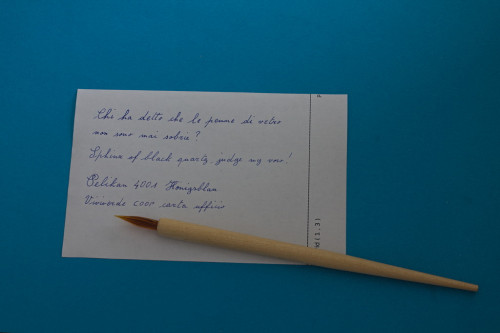 Chi ha detto che le penne di vetro
non sono mai sobrie?
Sphinx of black quartz, judge my vow!
Pelikan 4001 Königsblau
Viviverde COOP carta ufficio